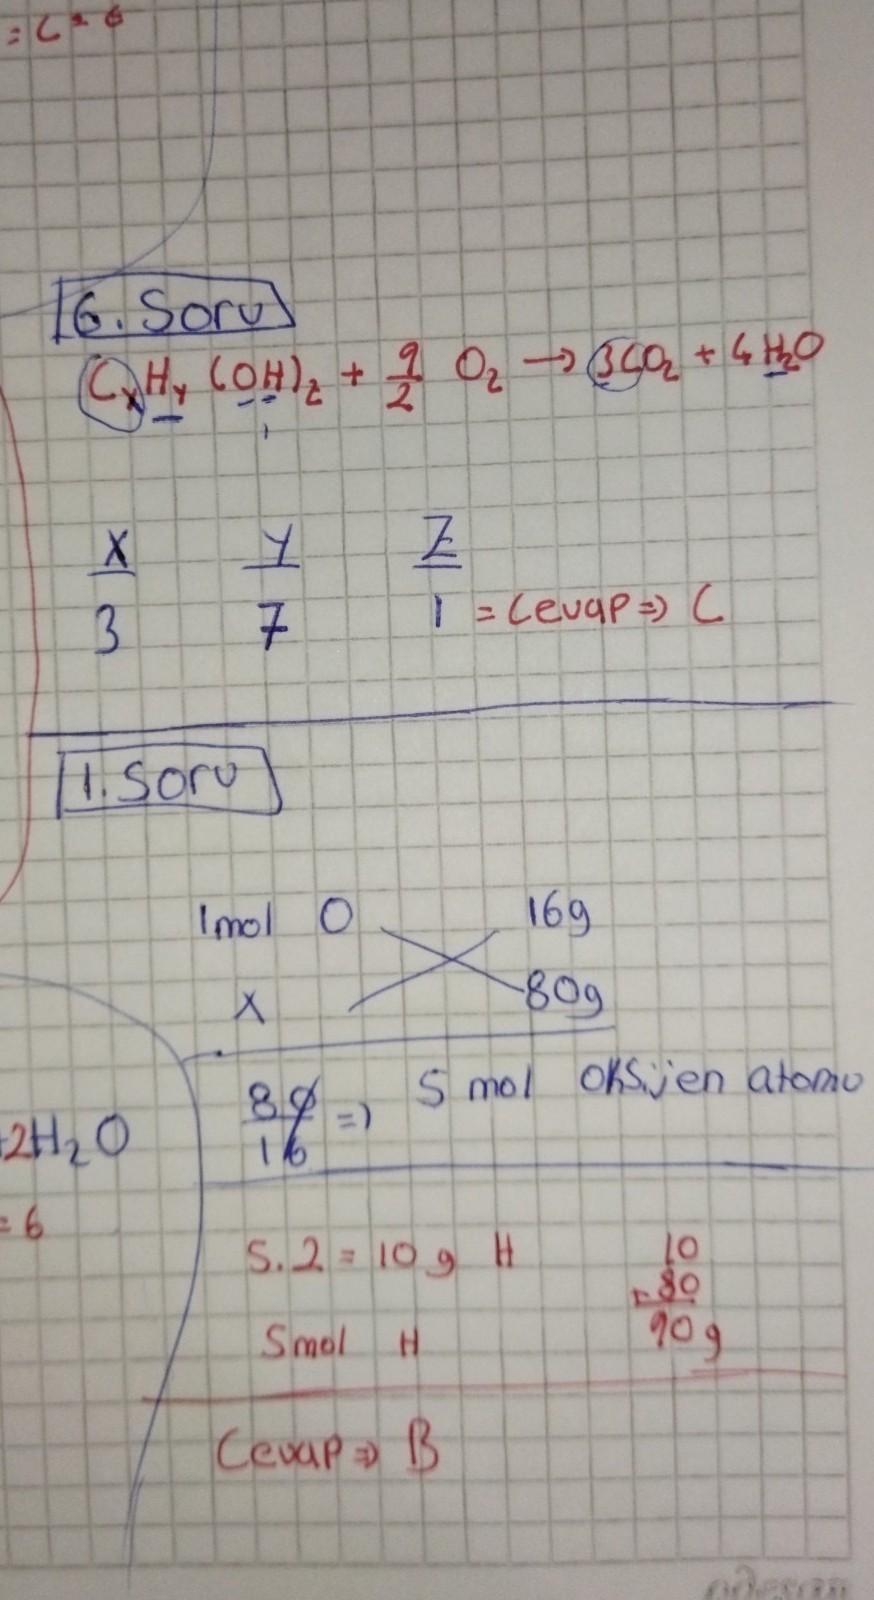 = C = 6
6. Soru
CxHy (OH)z + 9/2 O2 → 3CO2 + 4H2O
X Y Z
3 7 1 = Cevap => C
1. Soru
1mol O 16g
X 80g
80/16 => 5 mol oksijen atomu
+2H2O
= 6
5.2 = 10 g H
5mol H
10
+ 80
90 g
Cevap => B